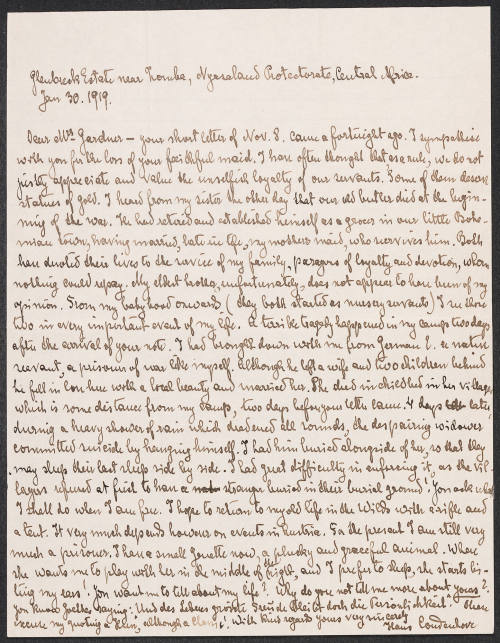 Glenbreck Estate near Zomba, Nyasaland Protectorate, Central Africa.
Jan 30. 1919.
Dear Mrs Gardner – your short letter of Nov. 8. came a fortnight ago. I sympathise
with you for the loss of your faithful maid. I have often thought that as a rule, we do not
justly appreciate and value the unselfish loyalty of our servants. Some of them deserve
statues of gold. I heard from my sister the other day that our old butler died at the begin-
ning of the war. He had retired and established himself as a grocer in our little Bohe-
mian town, having married, late in life, my mothers maid, who survives him. Both
have devoted their lives to the service of my family, paragons of loyalty and devotion, whom
nothing could repay. My eldest brother, unfortunately, does not appear to have been of my
opinion. From my babyhood onwards (they both started as nursery servants) I see these
two in every important event of my life. A terrible tragedy happened in my camp two days
after the arrival of your note. I had brought down with me from German E. a native
servant, a prisoner of war like myself. Although he left a wife and two children behind
he fell in love here with a local beauty and married her. She died in childbed in her village
which is some distance from my camp, two days before your letter came. 4 days later
during a heavy shower of rain which deadened all sounds, the despairing widower
committed suicide by hanging himself. I had him buried alongside of her, so that they
may sleep their last sleep side by side. I had great difficulty in enforcing it, as the vil-
lagers refused at first to have a stranger buried in their burial ground! You ask what
I shall do when I am free. I hope to return to my old life in the Wilds with a rifle and
a tent. It very much depends however on events in Austria. For the present I am still very
much a prisoner. I have a small Genette now, a plucky and graceful animal. When
she wants me to play with her in the middle of the night, and I prefer to sleep, she starts bi-
ting my ears! You want me to tell about my life? Why do you not tell me more about yours?
You know Goethes saying: Und des Lebens grösste Freude bleibt doch die Persönlichkeit. Please
excuse my quoting a Hun, although a classic! With kind regard yours very sincerely
Hans Coudenhove